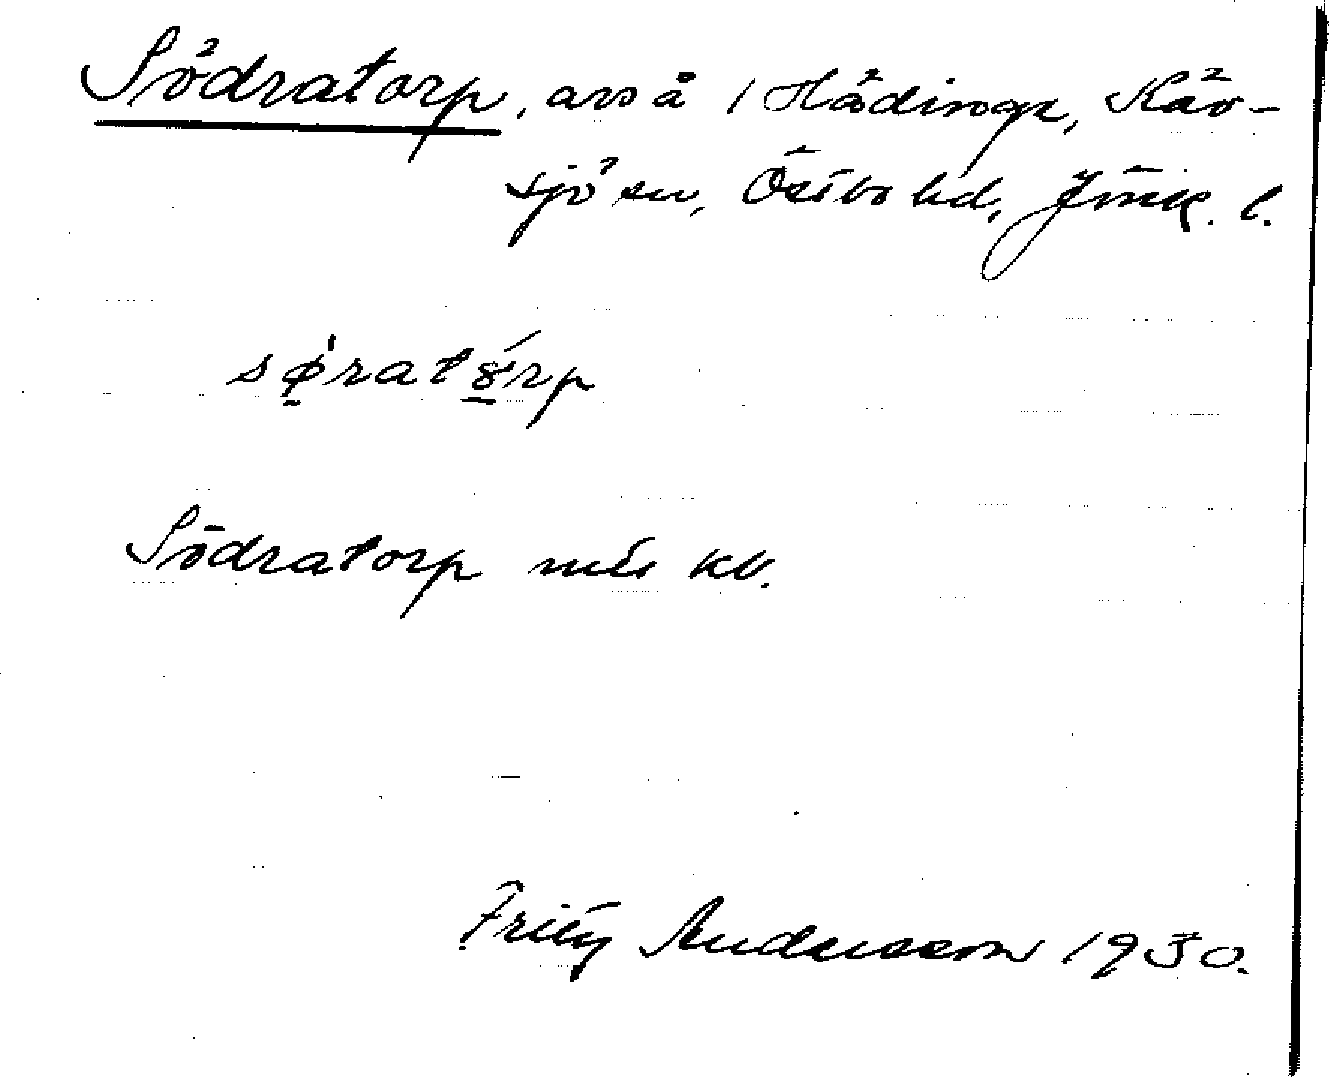 Södratorp, avs å / Hädinge, Käv-
sjö sn, Östbo hd, Jönk. l.
sø̱ratórp
Södratorp kv.
Fritz Andersson 1930.